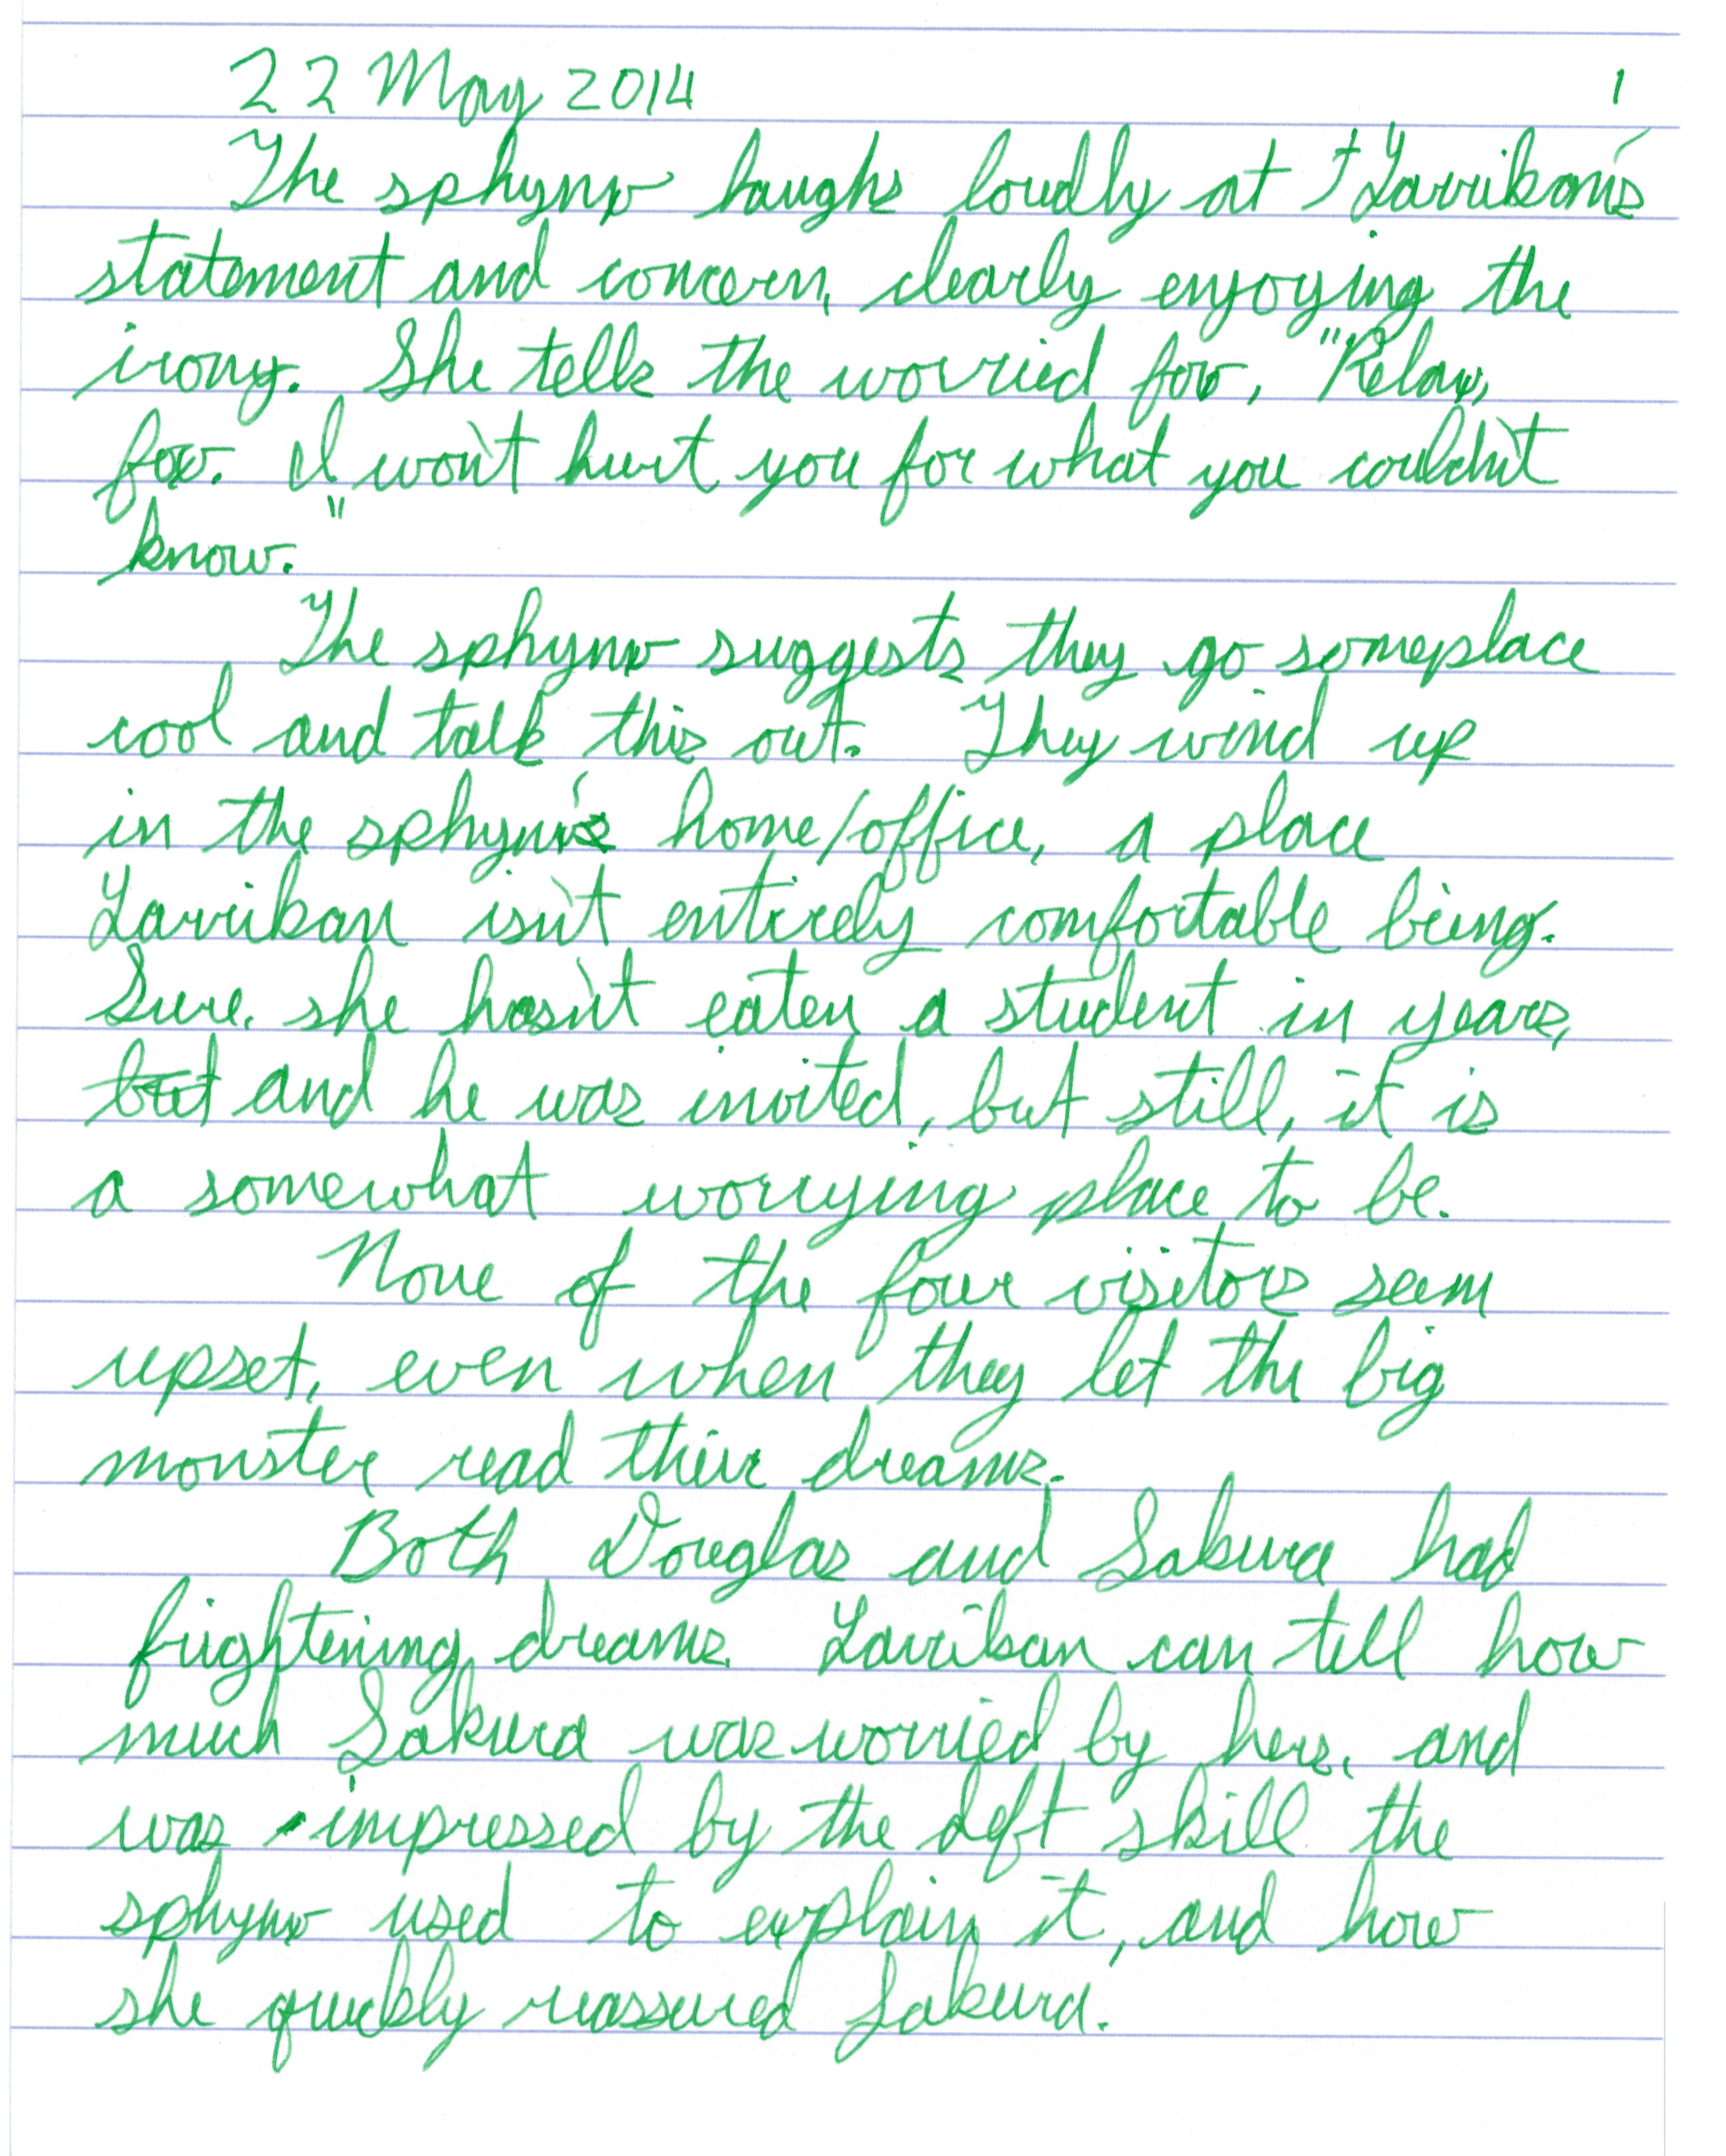 22 May 2014 1
The sphynx laughs loudly at Larrikan's
statement and concern, clearly enjoying the
irony. She tells the worried fox, "Relax,
fox. I won't hurt you for what you couldn't
know."
The sphynx suggests they go someplace
cool and talk this out. They wind up
in the sphynx's home/office, a place
Larrikan isn't entirely comfortable being.
Sure, she hasn't eaten a student in years,
but and he was invited, but still, it is
a somewhat worrying place to be.
None of the four visitors seem
upset, even when they let the big
monster read their dreams.
Both Douglas and Sakura had
frightening dreams. Larrikan can tell how
much Sakura was worried by hers, and
was impressed by the deft skill the
sphynx used to explain it, and how
she quickly reassured Sakura.